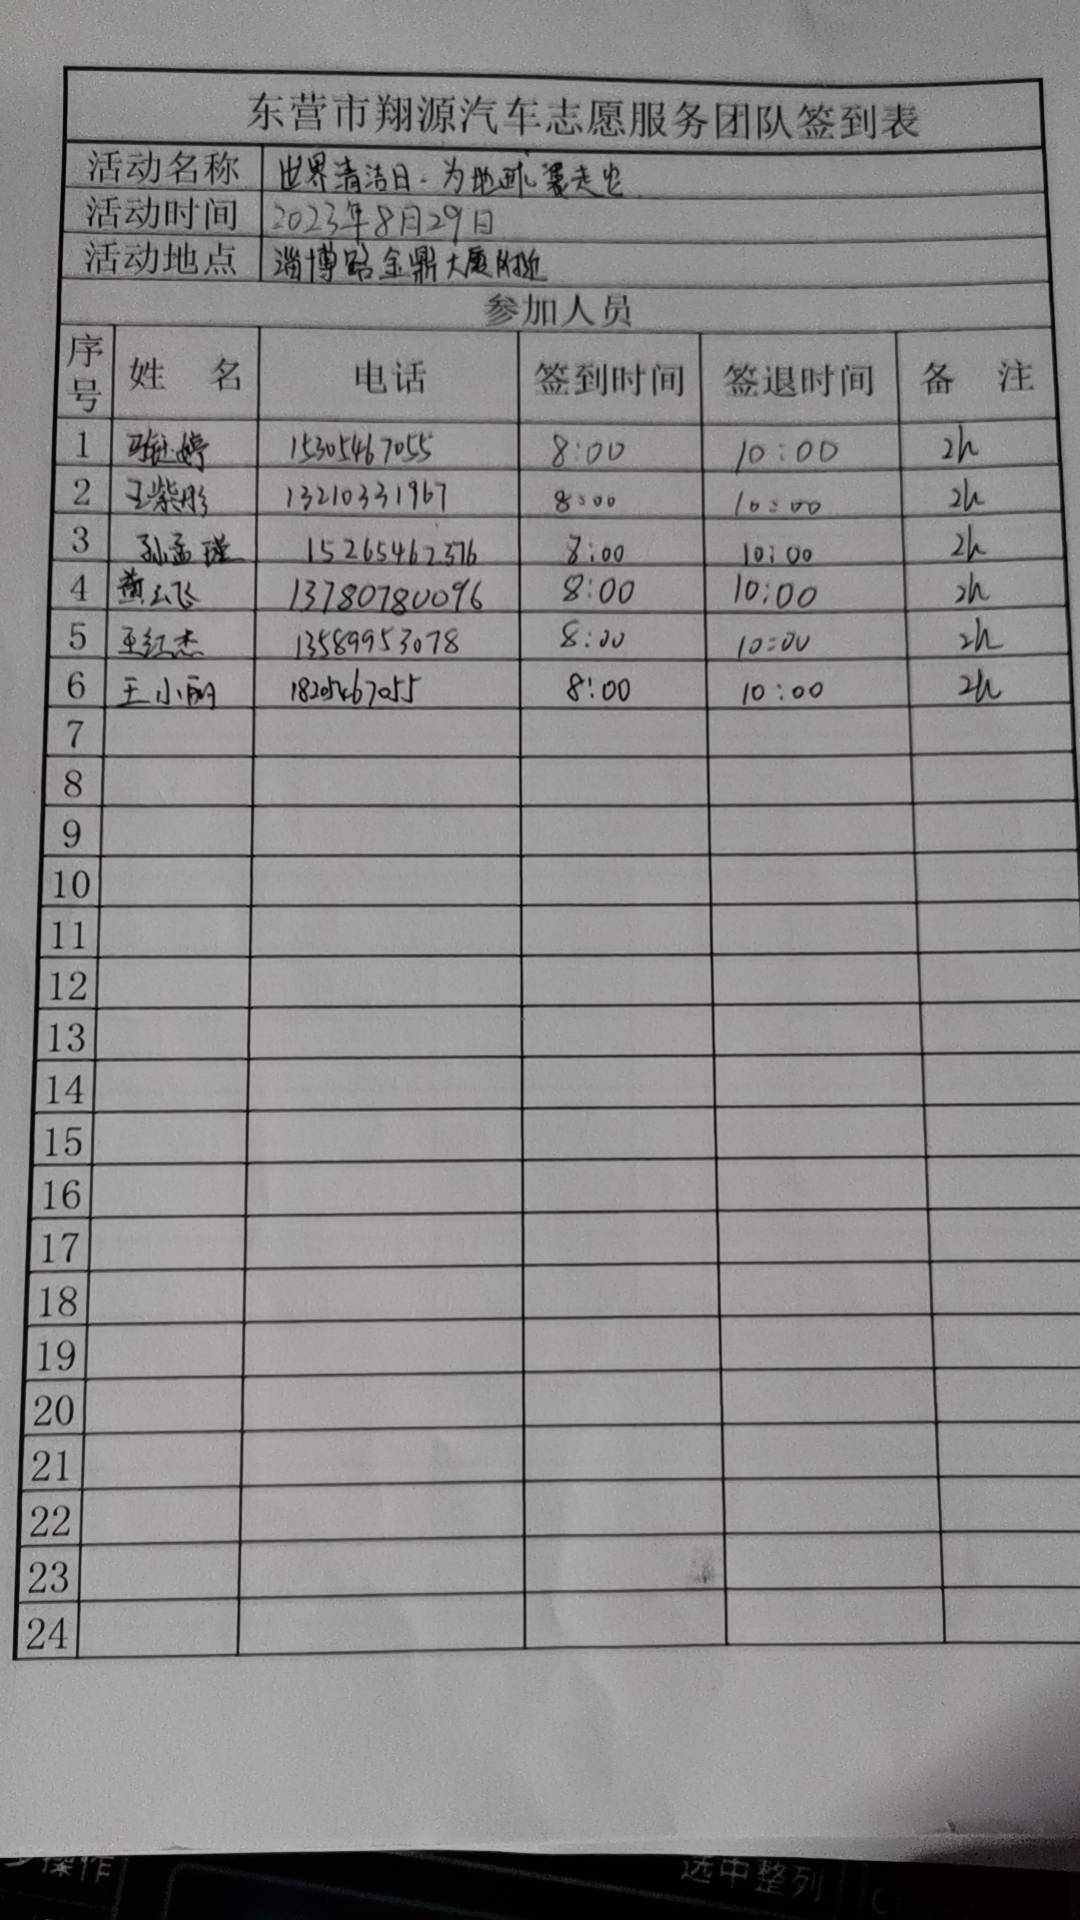 东营市翔源汽车志愿服务团队签到表
活动名称 世界清洁日·为地球
活动时间 2023年8月29日
活动地点 淄博路金鼎大厦附近
参加人员
序号 姓 名 电话 签到时间 签退时间 备 注
1 婷 15305467055 8:00 10:00 2h
2 王紫彤 13210331967 8:00 10:00 2h
3 孙孟瑾 15265462376 8:00 10:00 2h
4 燕云飞 13780780096 8:00 10:00 2h
5 王红杰 13589953078 8:00 10:00 2h
6 王小丽 18205467055 8:00 10:00 2h
7
8
9
10
11
12
13
14
15
16
17
18
19
20
21
22
23
24
操作 选中整列